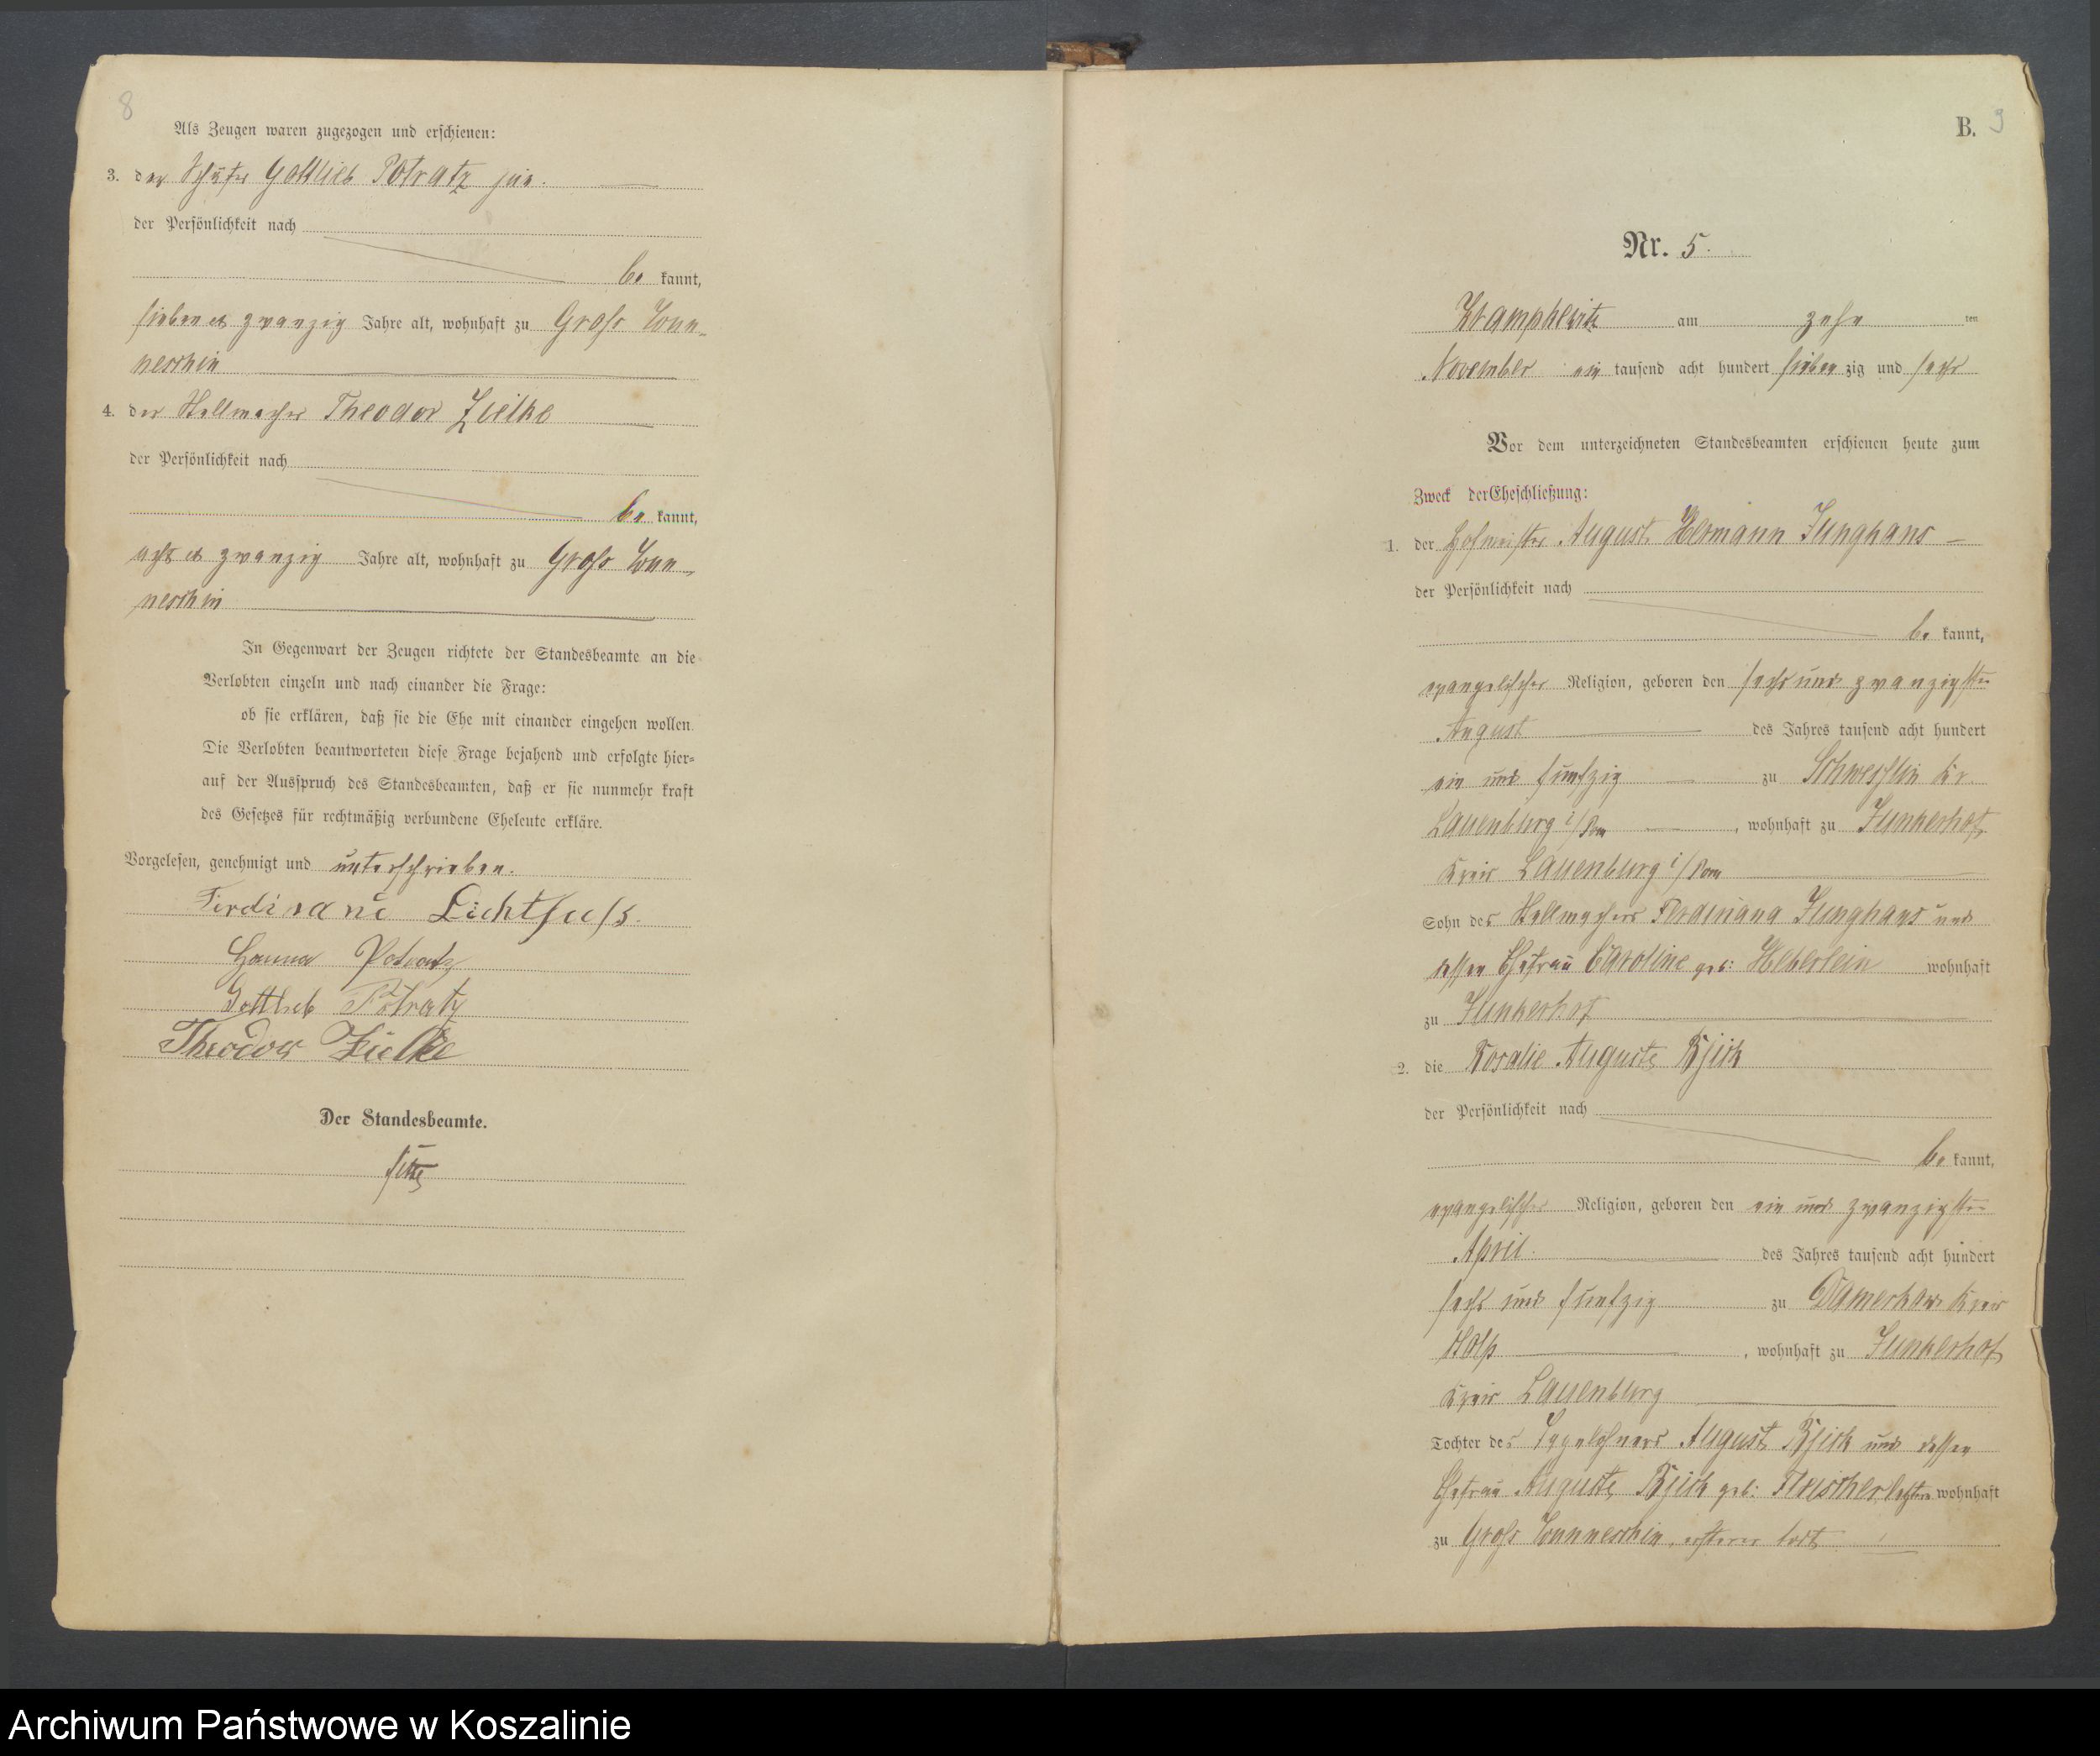 8
Als Zeugen waren zugezogen und erschienen:
3. der Schäfer Gottlieb Potratz jun.
der Persönlichkeit nach
be kannt,
sieben et zwanzig Jahre alt, wohnhaft zu Gross Wun-
neschin
4. der Stellmacher Theodor Zielke
der Persönlichkeit nach
be kannt,
acht et zwanzig Jahre alt, wohnhaft zu Gross Wun-
neschin
In Gegenwart der Zeugen richtete der Standesbeamte an die
Verlobten einzeln und nach einander die Frage:
ob sie erklären, daß sie die Ehe mit einander eingehen wollen.
Die Verlobten beantworteten diese Frage bejahend und erfolgte hier-
auf der Ausspruch des Standesbeamten, daß er sie nunmehr kraft
des Gesetzes für rechtmäßig verbundene Eheleute erkläre.
Vorgelesen, genehmigt und unterschrieben.
Ferdinand Lichtfuss.
Hanna Potratz
Gottlieb Potratz
Theodor Zielke
Der Standesbeamte.
B. 9
Nr. 5.
Krampkewitz am zehn ten
November ein tausend acht hundert sieben zig und sechs
Vor dem unterzeichneten Standesbeamten erschienen heute zum
Zweck der Eheschließung:
1. der Hofmeister August Hermann Junghans
der Persönlichkeit nach
be kannt,
evangelischer Religion, geboren den sechs und zwanzigsten
August des Jahres tausend acht hundert
ein und funfzig zu Schweslin Kr.
Lauenburg i/Pom, wohnhaft zu Junkerhof,
Kreis Lauenburg i/Pom
Sohn des Stellmachers Ferdinand Junghans und
dessen Ehefrau Caroline geb: Heberlein wohnhaft
zu Junkerhof
2. die Rosalie Auguste Kjick
der Persönlichkeit nach
be kannt,
evangelischer Religion, geboren den ein und zwanzigsten
April des Jahres tausend acht hundert
sechs und funfzig zu Damerkow Kreis
Stolp, wohnhaft zu Junkerhof
Kreis Lauenburg
Tochter des Tagelöhners August Kjick und dessen
Ehefrau Auguste Kjick geb: Fleischer letztere wohnhaft
zu Gross Wunneschin, ersterer todt
Archiwum Państwowe w Koszalinie